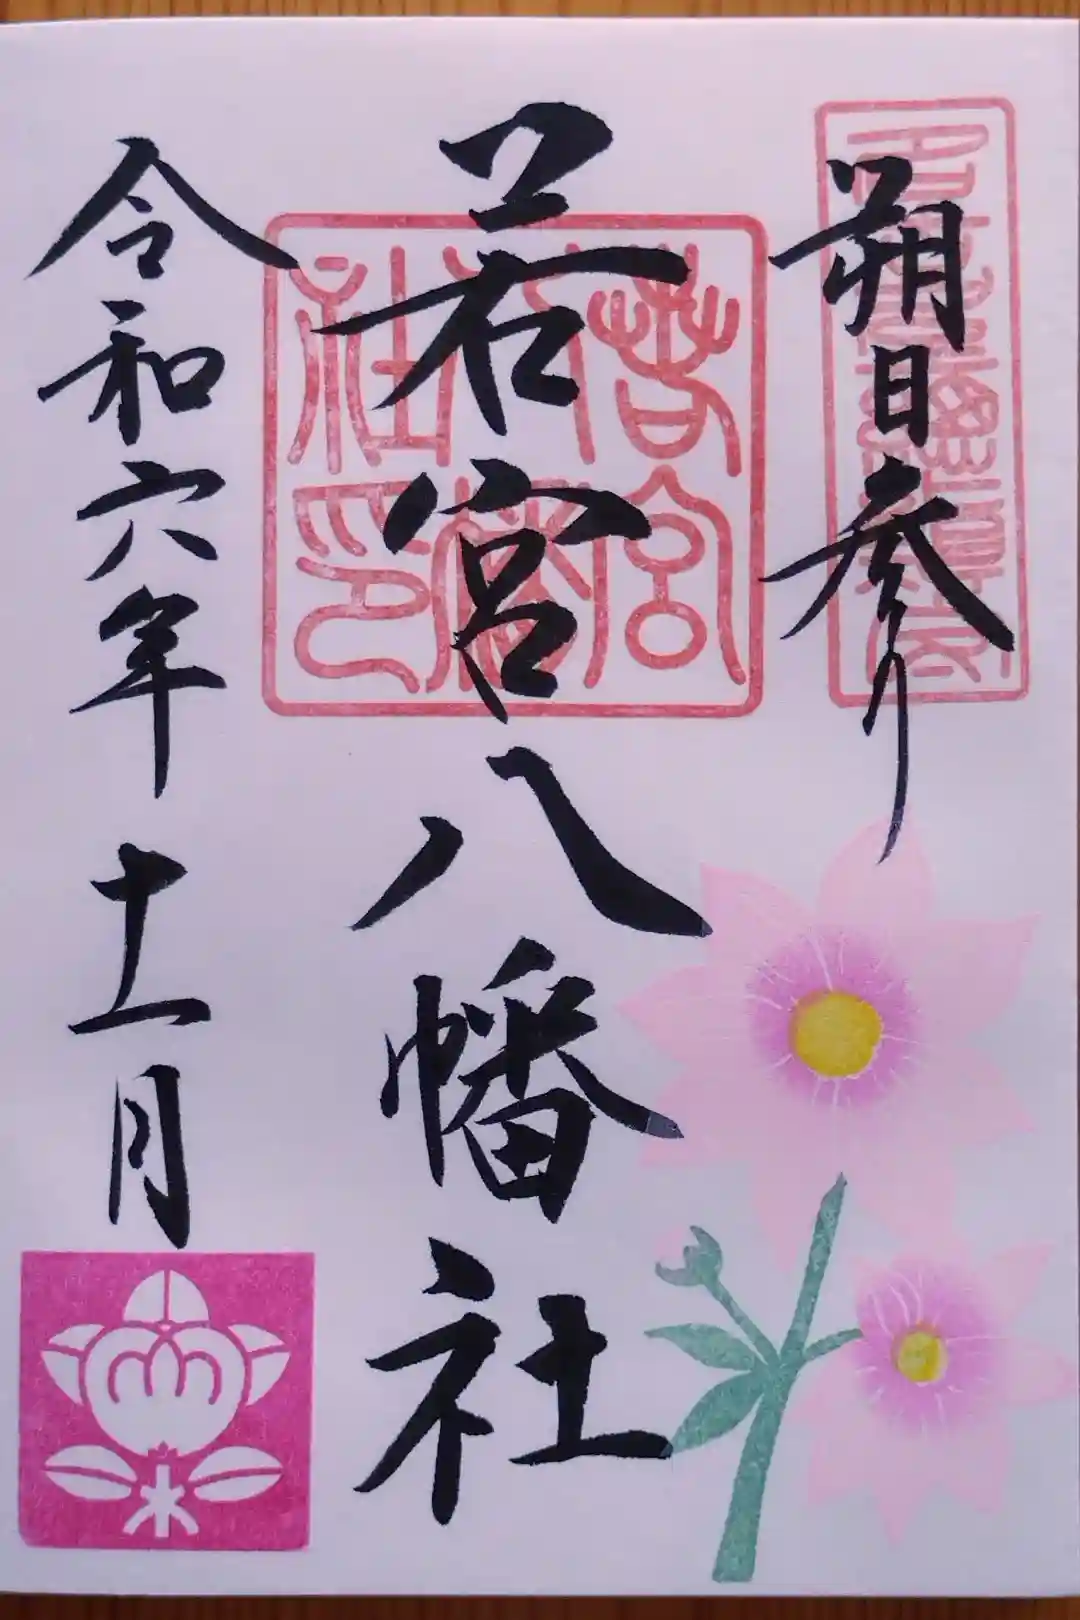 朔日参り
若宮八幡社
令和六年十一月
若宮八幡社印